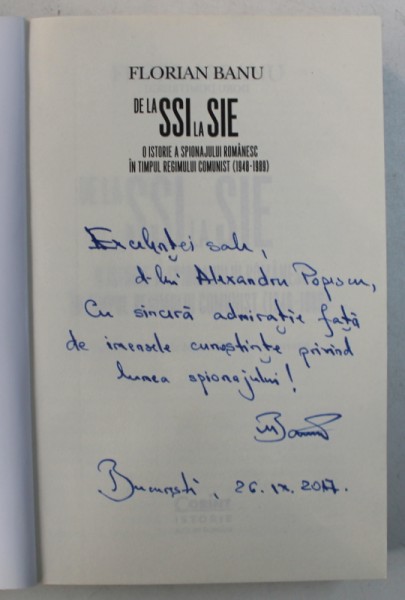 FLORIAN BANU
DE LA
SSI LA SIE
O ISTORIE A SPIONAJULUI ROMÂNESC
ÎN TIMPUL REGIMULUI COMUNIST (1948-1989)
Excelenței sale,
d-lui Alexandru Popescu,
Cu sinceră admirație față
de imensele cunoștințe privind
lumea spionajului!
Banu
București, 26.IX.2017.
Corint
ISTORIE